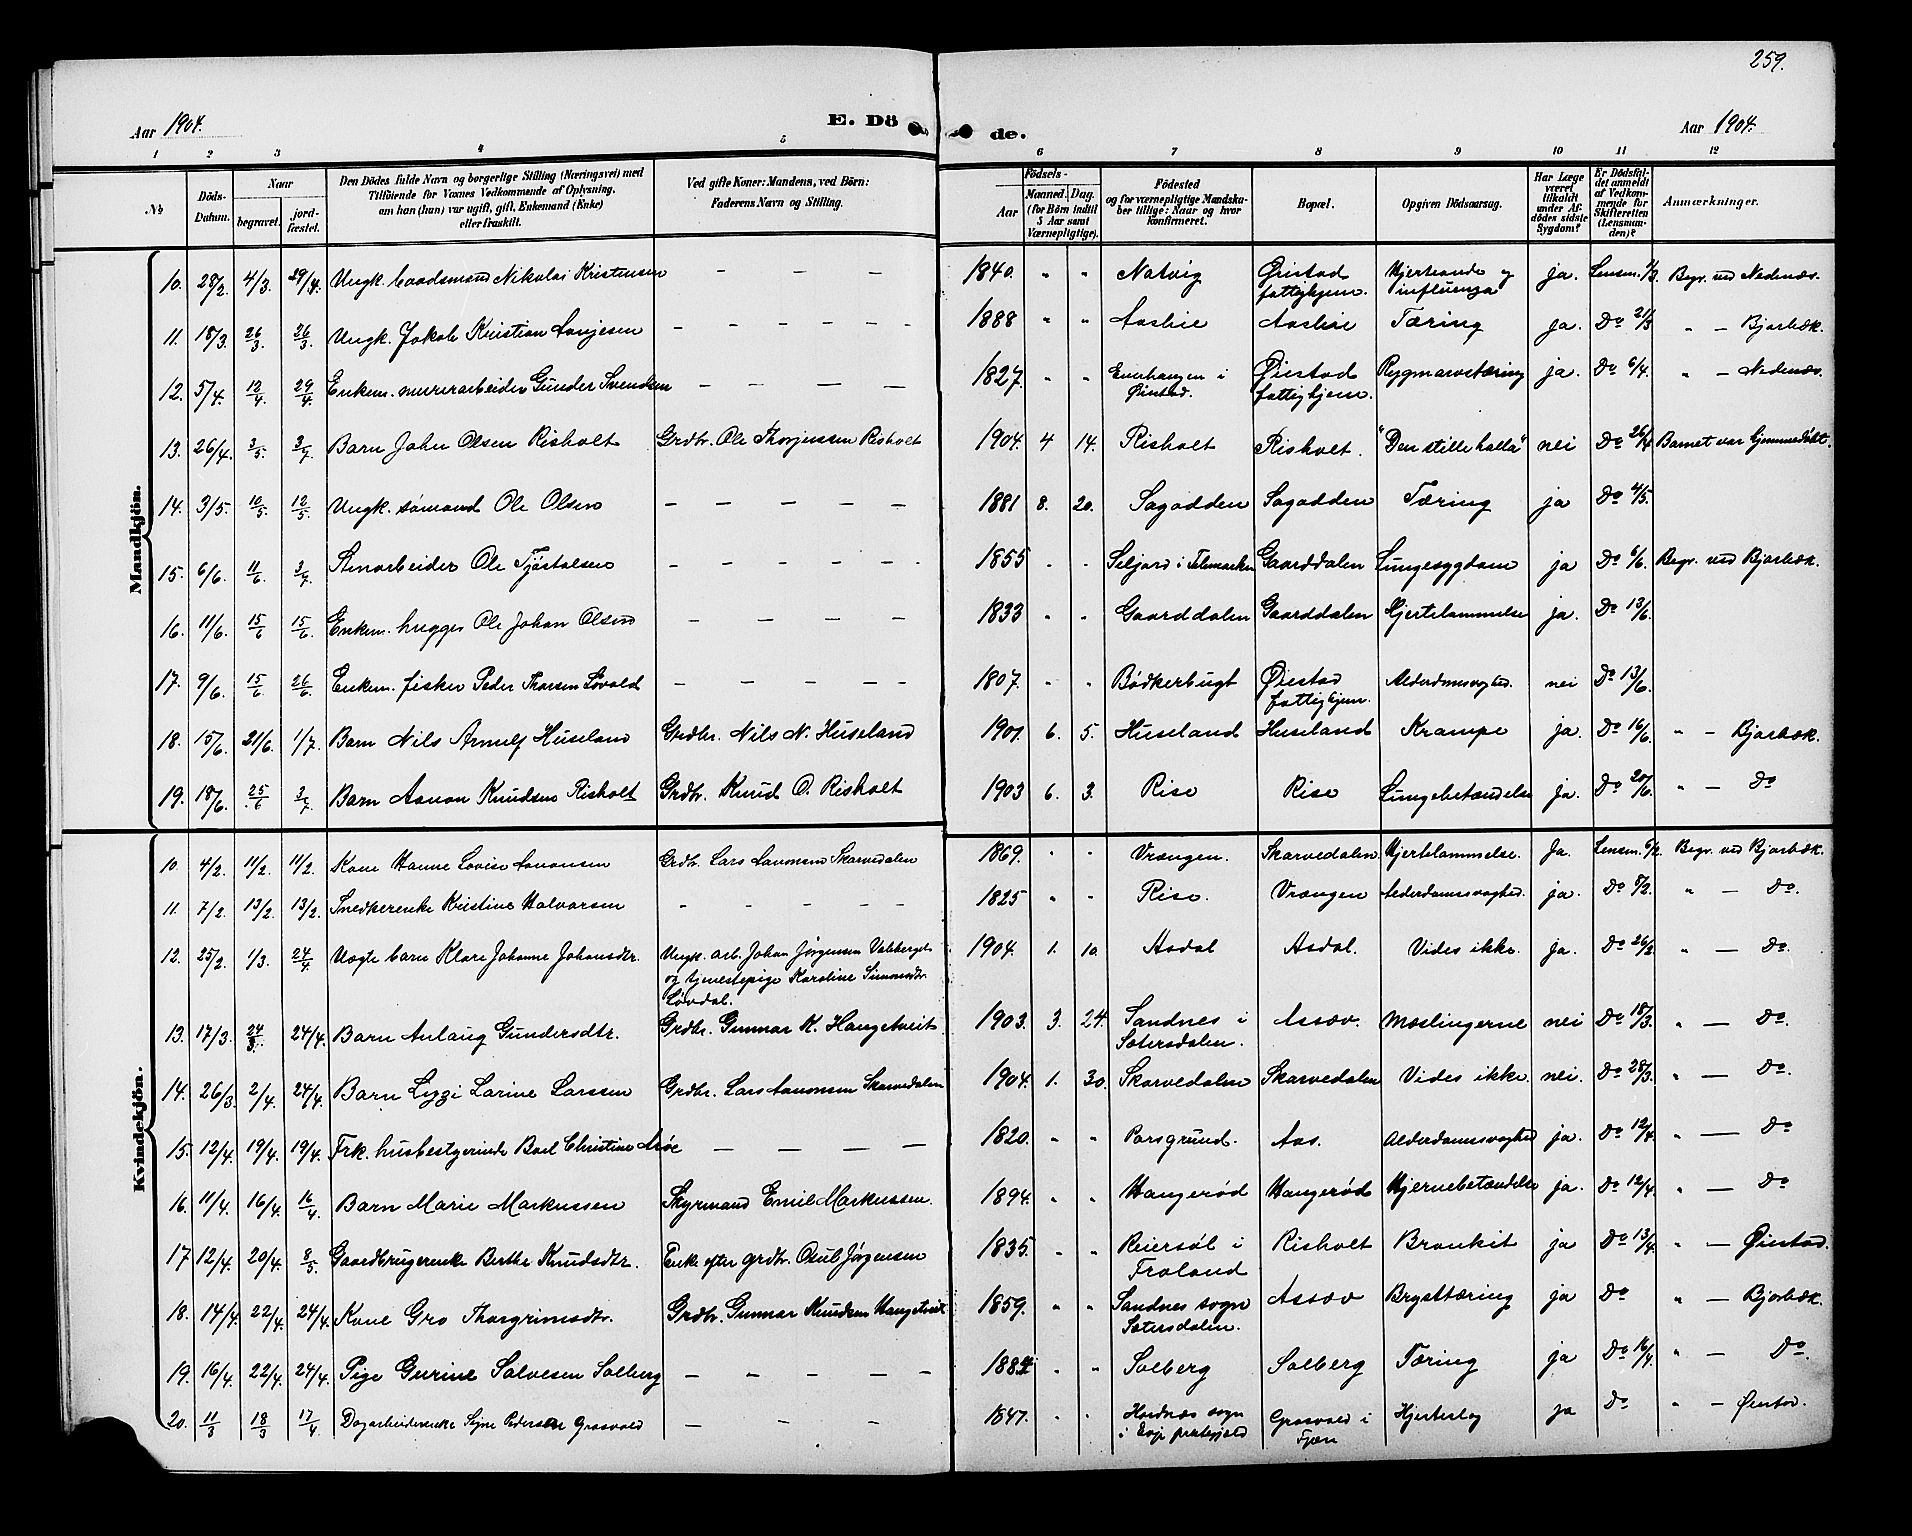 259.
Aar 1904. E. Dö de. Aar 1904.
1 2 3 4 5 6 7 8 9 10 11 12
№ Döds-Datum. Naar begravet. jordfæstet. Den Dödes fulde Navn og borgerlige Stilling (Næringsvei) med Tilföiende for Voxnes Vedkommende af Oplysning, om han (hun) var ugift, gift, Enkemand (Enke) eller fraskilt. Ved gifte Koner: Mandens, ved Börn: Faderens Navn og Stilling. Födsels- Aar Maaned. Dag. (for Börn indtil 5 Aar samt Værnepligtige). Födested og for værnepligtige Mandskaber tillige: Naar og hvor konfirmeret. Bopæl. Opgiven Dödsaarsag. Har Læge været tilkaldt under Afdödes sidste Sygdom? Er Dödsfaldet anmeldt af Vedkommende for Skifteretten (Lensmanden)? Anmærkninger.
Mandkjön.
10. 28/2. 4/3. 29/4. Ungk. baadsmand Nikolai Kristensen — — — 1840. " " Natvig Øiestad fattighjem. Hjerteonde og influenza ja. Lensm. 1/3. Begr. ved Nedenæs.
11. 18/3. 26/3. 26/3. Ungk. Jakob Kristian Lovjesen — — — — — 1888 " " Aaslie Aaslie Tæring ja. Do 21/3 " — Bjorbæk.
12. 5/4. 12/4. 29/4. Enkem. murerarbeider Gunder Svendsen — — — — 1827. " " i Øiestad. Øiestad fattighjem. Rygmarvstæring ja. Do 6/4. " — Nedenæs.
13. 26/4. 3/5. 3/7. Barn John Olsen Risholt Grdbr. Ole Thorjussen Risholt 1904. 4 14. Risholt Risholt. "Den stille halla" nei Do 26/4 Barnet var hjemmedøbt.
14. 3/5. 10/5. 12/5. Ungk. sømand Ole Olsen — — — — — 1881 8. 20. Sagodden Sagodden Tæring ja Do 4/5.
15. 6/6. 11/6. 3/7. Stenarbeider Ole Tjøstolsen — — — — — 1855 " " Seljord i Telemarken Gaarddalen Lungesygdom ja Do 6/6. Begr. ved Bjorbæk.
16. 11/6. 15/6 15/6. Enkem. hugger Ole Johan Olsen — — — — 1833 " " Gaarddalen Gaarddalen Hjertelammelse ja. Do 13/6.
17. 9/6. 15/6. 26/6. Enkem. fisker Peder Thorsen Løvold — — — — — 1807. " " Bødkerbugt Øiestad fattighjem. Alderdomssvaghed. nei Do 13/6.
18. 15/6. 21/6. 1/7. Barn Nils Arnulf Huseland Grdbr. Nils N. Huseland 1901 6. 5. Huseland Huseland Krampe ja. Do 16/6. " — Bjorbæk.
19. 18/6. 25/6 3/7. Barn Aanon Knudsen Risholt Grdbr. Knud O. Risholt 1903 6. 3. Rise Rise Lungebetændelse ja. Do 20/6. " — Do
Kvindekjön.
10. 4/2. 11/2. 11/2. Kone Hanne Lovise Aanonsen Grdbr. Lars Aanonsen Skarvedalen 1869. " " Vrængen. Skarvedalen. Hjertelammelse. Ja. Lensm. 6/2. Begr. ved Bjorbæk.
11. 7/2. 13/2. 13/2. Snedkerenke Kristine Halvorsen — — — — — 1825 " " Rise. Vrængen Alderdomssvaghed. ja. Do 8/2. " — Do.
12. 25/2. 1/3. 24/4. Uægte barn Klare Johanne Johansdtr. Ungk. arb. Johan Jørgensen og tjenestepige Karoline Simonsdtr. Løvdal. 1904. 1. 10. Asdal Asdal. Vides ikke. ja. Do 26/2 " — Do.
13. 17/3. 24/3. 24/4. Barn Anlaug Gundersdtr. Grdbr. Gunnar K. Haugetveit 1903. 3. 24. Sandnes i Sætersdalen. Assæv. Mæslingerne nei Do 18/3. " — Do.
14. 26/3. 2/4. 24/4. Barn Lizzi Larine Larssen Grdbr. Lars Aanonsen Skarvedalen 1904. 1. 30. Skarvedalen Skarvedalen Vides ikke. nei. Do 28/3. " — Do.
15. 12/4. 19/4. 19/4. Frk. husbestyrerinde Boel Christine Arøe — — — 1820. " " Porsgrund. Aas. Alderdomssvaghed ja. Do 12/4. " — Do
16. 11/4. 16/4. 16/4. Barn Marie Markussen Styrmand Emil Markussen. 1894. " " Haugerød Haugerød Hjernebetændelse ja. Do 12/4. " — Do
17 12/4. 20/4. 8/5. Gaardbrugerenke Berthe Knudsdtr. Enke efter grdbr. Osul Jørgensen 1835. " " Reiersøl i Froland Risholt Bronkit ja Do 13/4. " — Øiestad.
18. 14/4. 22/4. 24/4. Kone Gro Thorgrimsdtr. Grdbr. Gunnar Knudsen Haugetveit 1859. " " Sandnes sogn Sætersdalen. Assæv Brysttæring ja Do " — Bjorbæk.
19. 16/4. 22/4. 24/4. Pige Gurine Salvesen Solberg — — — — — 1884 " " Solberg Solberg Tæring ja Do 16/4. " — Do.
20. 11/3 18/3 17/4 Dagarbeiderenke Signe Pedersen Grosvold — — — 1847. " " Hordnæs sogn i Evje præstegjeld Grosvold i Fjære Hjerteslag ja Do " — Øiestad.